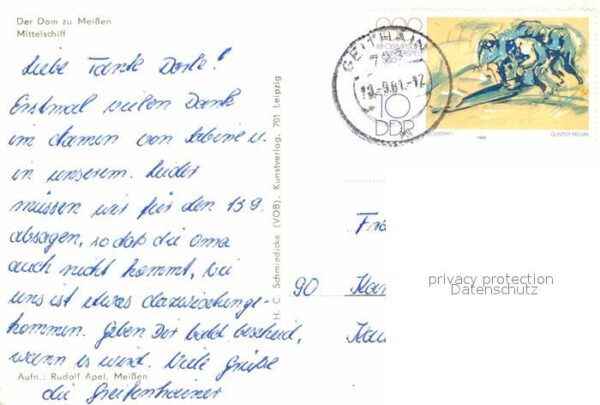 Der Dom zu Meißen
Mittelschiff
Liebe Tante Dorle!
Erstmal vielen Dank
im Namen von Sabine u.
in unserem. Leider
müssen wir für den 13.9.
absagen, so daß die Oma
auch nicht kommt, bei
uns ist etwas dazwischenge-
kommen. Geben Dir bald bescheid,
wann es wird. Viele Grüße
die Greifenhainer
Aufn.: Rudolf Apel, Meißen
H. C. Schmiedicke (VOB), Kunstverlag, 701 Leipzig
GEITHAIN
-9.81.-12
10
DDR
1980
GÜNTER RECHN
Fra
90 Kar
Kau
privacy protection
Datenschutz